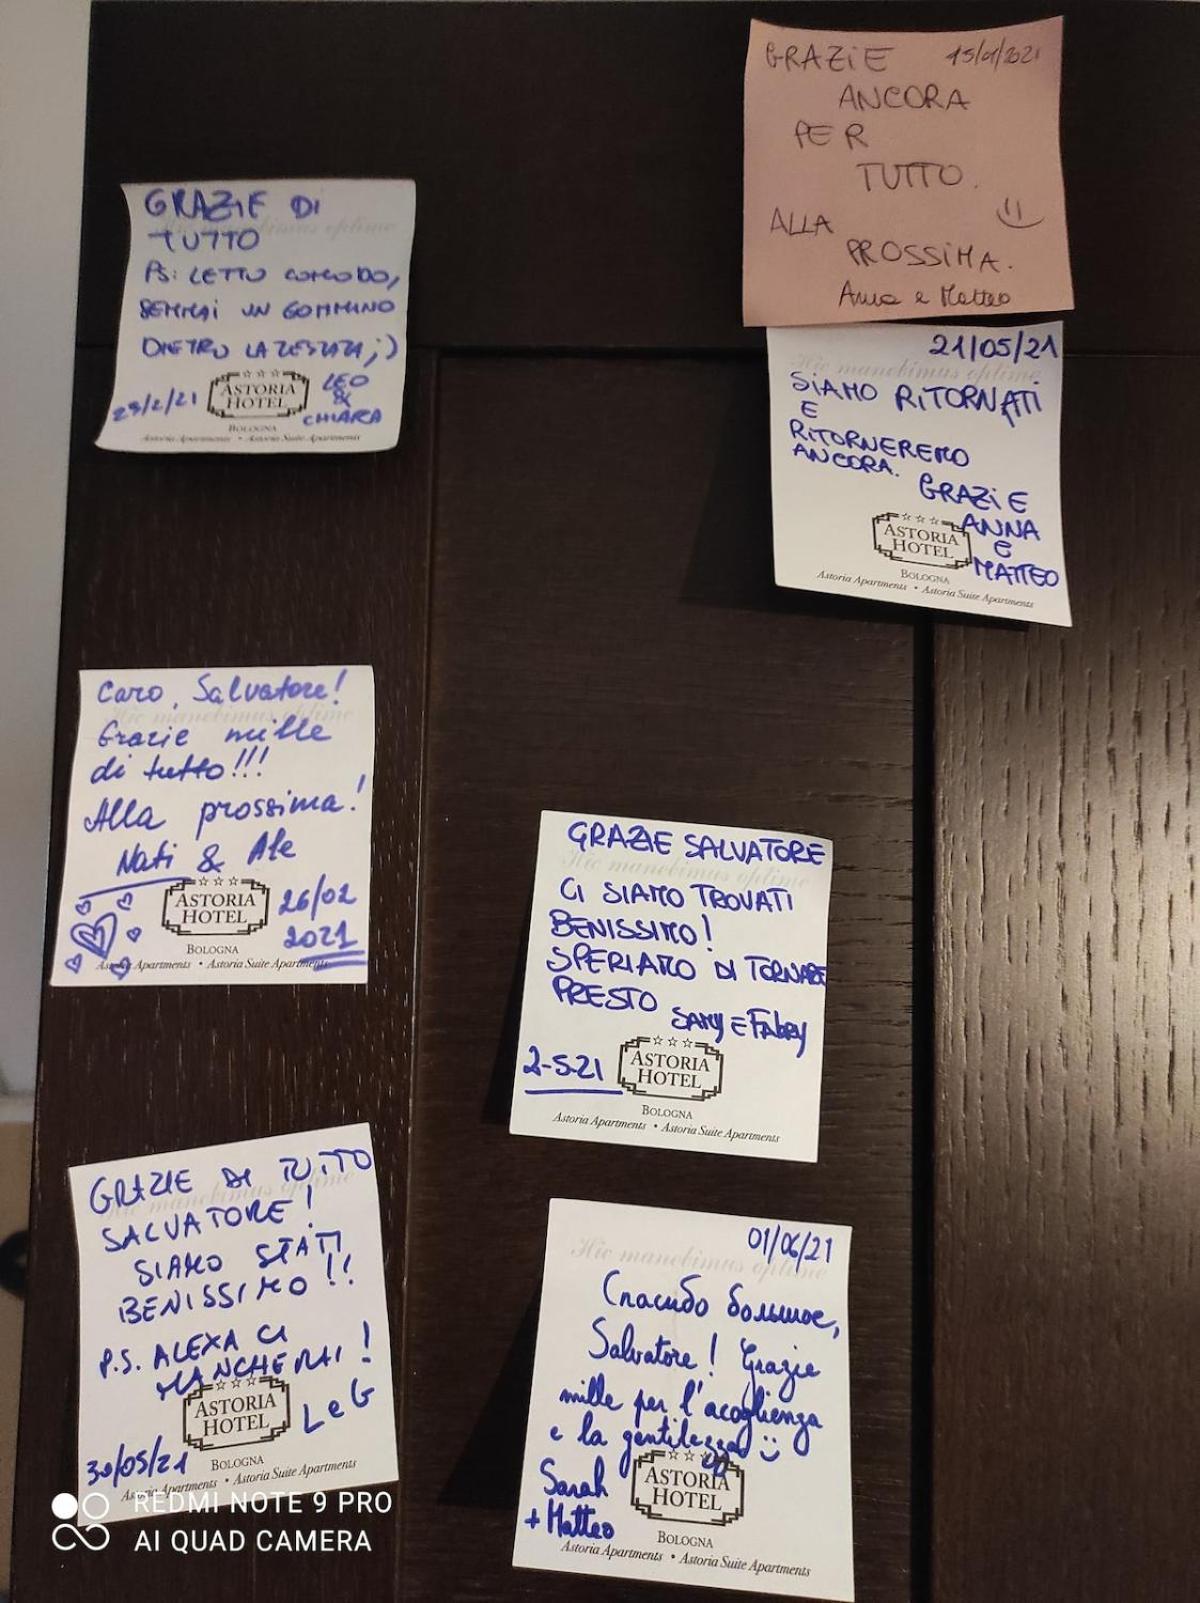 GRAZIE 15/01/2021
ANCORA
PER
TUTTO.
ALLA
PROSSIMA.
Anna e Matteo
GRAZIE DI
TUTTO
PS: LETTO COMODO,
SEMMAI UN GOMMINO
DIETRO LA TESTATA ;)
LEO
&
CHIARA
ASTORIA
HOTEL
BOLOGNA
Astoria Apartments • Astoria Suite Apartments
21/05/21
Hic manebimus optime
SIAMO RITORNATI
E
RITORNEREMO
ANCORA.
GRAZIE
ANNA
e
MATTEO
ASTORIA
HOTEL
BOLOGNA
Astoria Apartments • Astoria Suite Apartments
Caro, Salvatore!
Hic manebimus optime
Grazie mille
di tutto!!!
Alla prossima!
Nati & Ale
26/02
2021
ASTORIA
HOTEL
BOLOGNA
Astoria Apartments • Astoria Suite Apartments
GRAZIE SALVATORE
Hic manebimus optime
CI SIAMO TROVATI
BENISSIMO!
SPERIAMO DI TORNARE
PRESTO
SAMY E FABRY
2-5-21
ASTORIA
HOTEL
BOLOGNA
Astoria Apartments • Astoria Suite Apartments
GRAZIE DI TUTTO
Hic manebimus optime
SALVATORE!
SIAMO STATI
BENISSIMO!!
P.S. ALEXA CI
MANCHERAI!
L e G
30/05/21
ASTORIA
HOTEL
BOLOGNA
Astoria Apartments • Astoria Suite Apartments
01/06/21
Hic manebimus optime
Спасибо большое,
Salvatore! Grazie
mille per l'acoglienza
e la gentilezza
Sarah
+ Matteo
ASTORIA
HOTEL
BOLOGNA
Astoria Apartments • Astoria Suite Apartments
REDMI NOTE 9 PRO
AI QUAD CAMERA